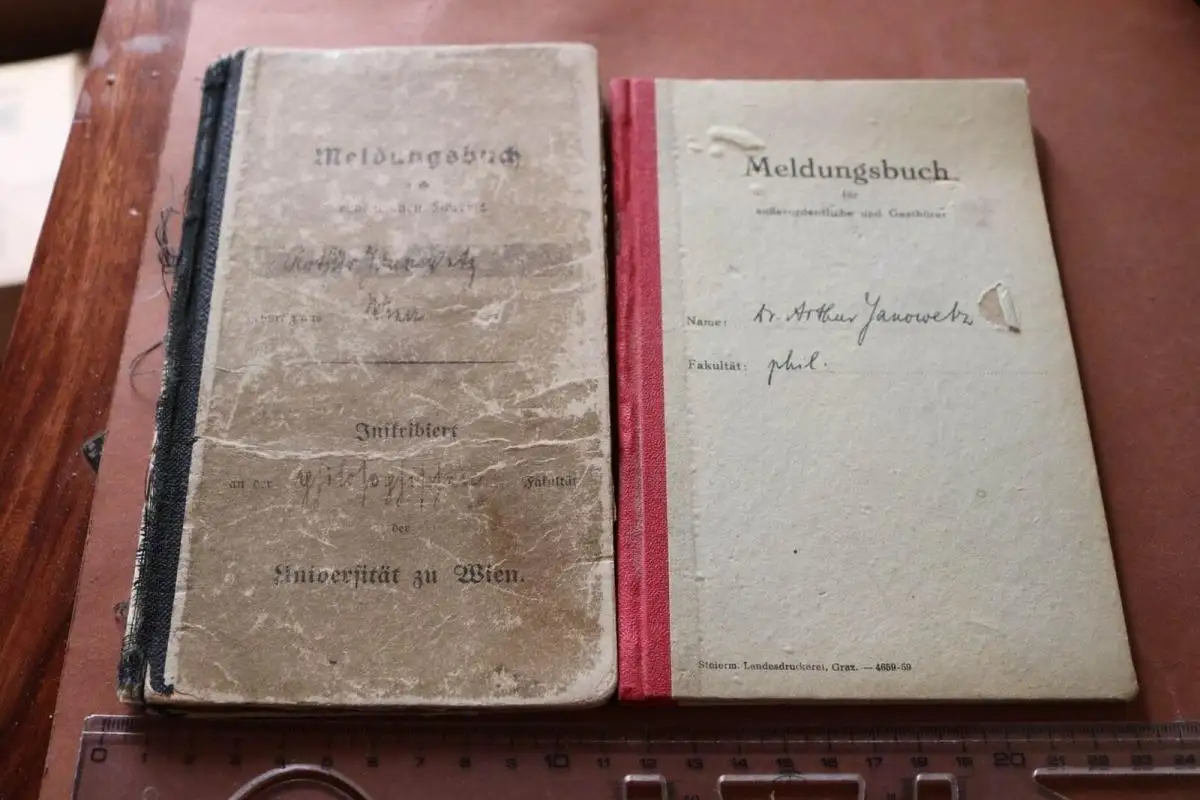 Meldungsbuch
Janowetz
Wien
Inskribiert
an der philosophischen Fakultät
der
Universität zu Wien.
Meldungsbuch
für
außerordentliche und Gasthörer
Name: Dr. Arthur Janowetz
Fakultät: phil.
Steierm. Landesdruckerei, Graz. — 4659-59
0 1 2 3 4 5 6 7 8 9 10 11 12 13 14 15 16 17 18 19 20 21 22 23 24